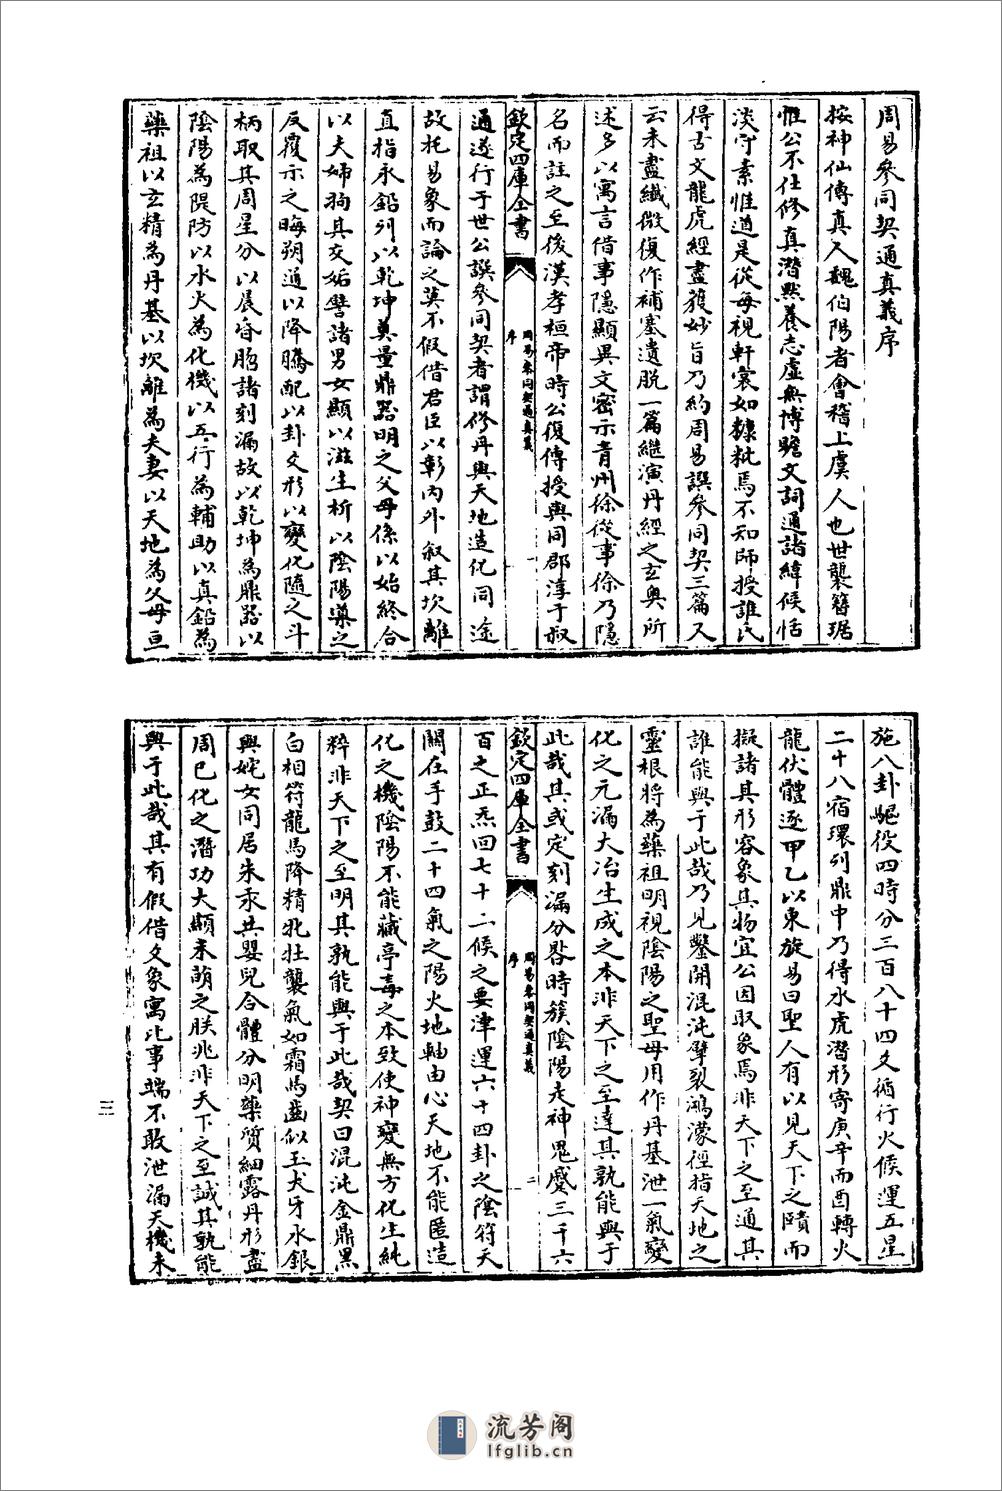 周易參同契通真義序
按神仙傳真人魏伯陽者會稽上虞人也世襲簪琚
惟公不仕修真潛黙養志虛無博贍文詞通諸緯候恬
淡守素惟道是從每視軒裳如糠粃焉不知師授誰氏
得古文龍虎經盡獲妙旨乃約周易譔參同契三篇又
云未盡纎微復作補塞遺脱一篇繼演丹經之玄奥所
述多以寓言借事隱顯異文密示青州徐從事徐乃隱
名而註之至後漢孝桓帝時公復傳授與同郡淳于叔
欽定四庫全書
周易參同契通真義
序
一
通遂行于世公譔參同契者謂修丹與天地造化同途
故托易象而論之莫不假借君臣以彰内外叙其坎離
直指汞鉛列以乾坤奠量鼎器明之父母係以始終合
以夫婦拘其交姤譬諸男女顯以滋生析以陰陽導之
反覆示之晦朔通以降騰配以卦爻形以變化隨之斗
柄取其周星分以晨昏昭諸刻漏故以乾坤為鼎器以
陰陽為隄防以水火為化機以五行為輔助以真鉛為
藥祖以玄精為丹基以坎離為夫妻以天地為父母互
施八卦驅役四時分三百八十四爻循行火候運五星
二十八宿環列鼎中乃得水虎潛形寄庚辛而酉轉火
龍伏體逐甲乙以東旋易曰聖人有以見天下之賾而
擬諸其形容象其物宜公因取象焉非天下之至通其
誰能與于此哉乃見鑿開混沌擘裂鴻濛徑指天地之
靈根將為藥祖明視陰陽之聖母用作丹基泄一氣變
化之元漏大冶生成之本非天下之至達其孰能與于
此哉其或定刻漏分晷時簇陰陽走神鬼蹙三千六
欽定四庫全書
周易參同契通真義
序
二
百之正炁回七十二候之要津運六十四卦之陰符天
關在手鼓二十四氣之陽火地軸由心天地不能匿造
化之機陰陽不能藏亭毒之本致使神變無方化生純
粹非天下之至明其孰能與于此哉契曰混沌金鼎黑
白相符龍馬降精牝牡襲氣如霜馬齒似玉犬牙水銀
與姹女同居朱汞共嬰兒合體分明藥質細露丹形盡
周已化之潛功大顯未萌之朕兆非天下之至誠其孰能
與于此哉其有假借爻象寓此事端不敢泄漏天機未
三
流芳阁
lfglib.cn